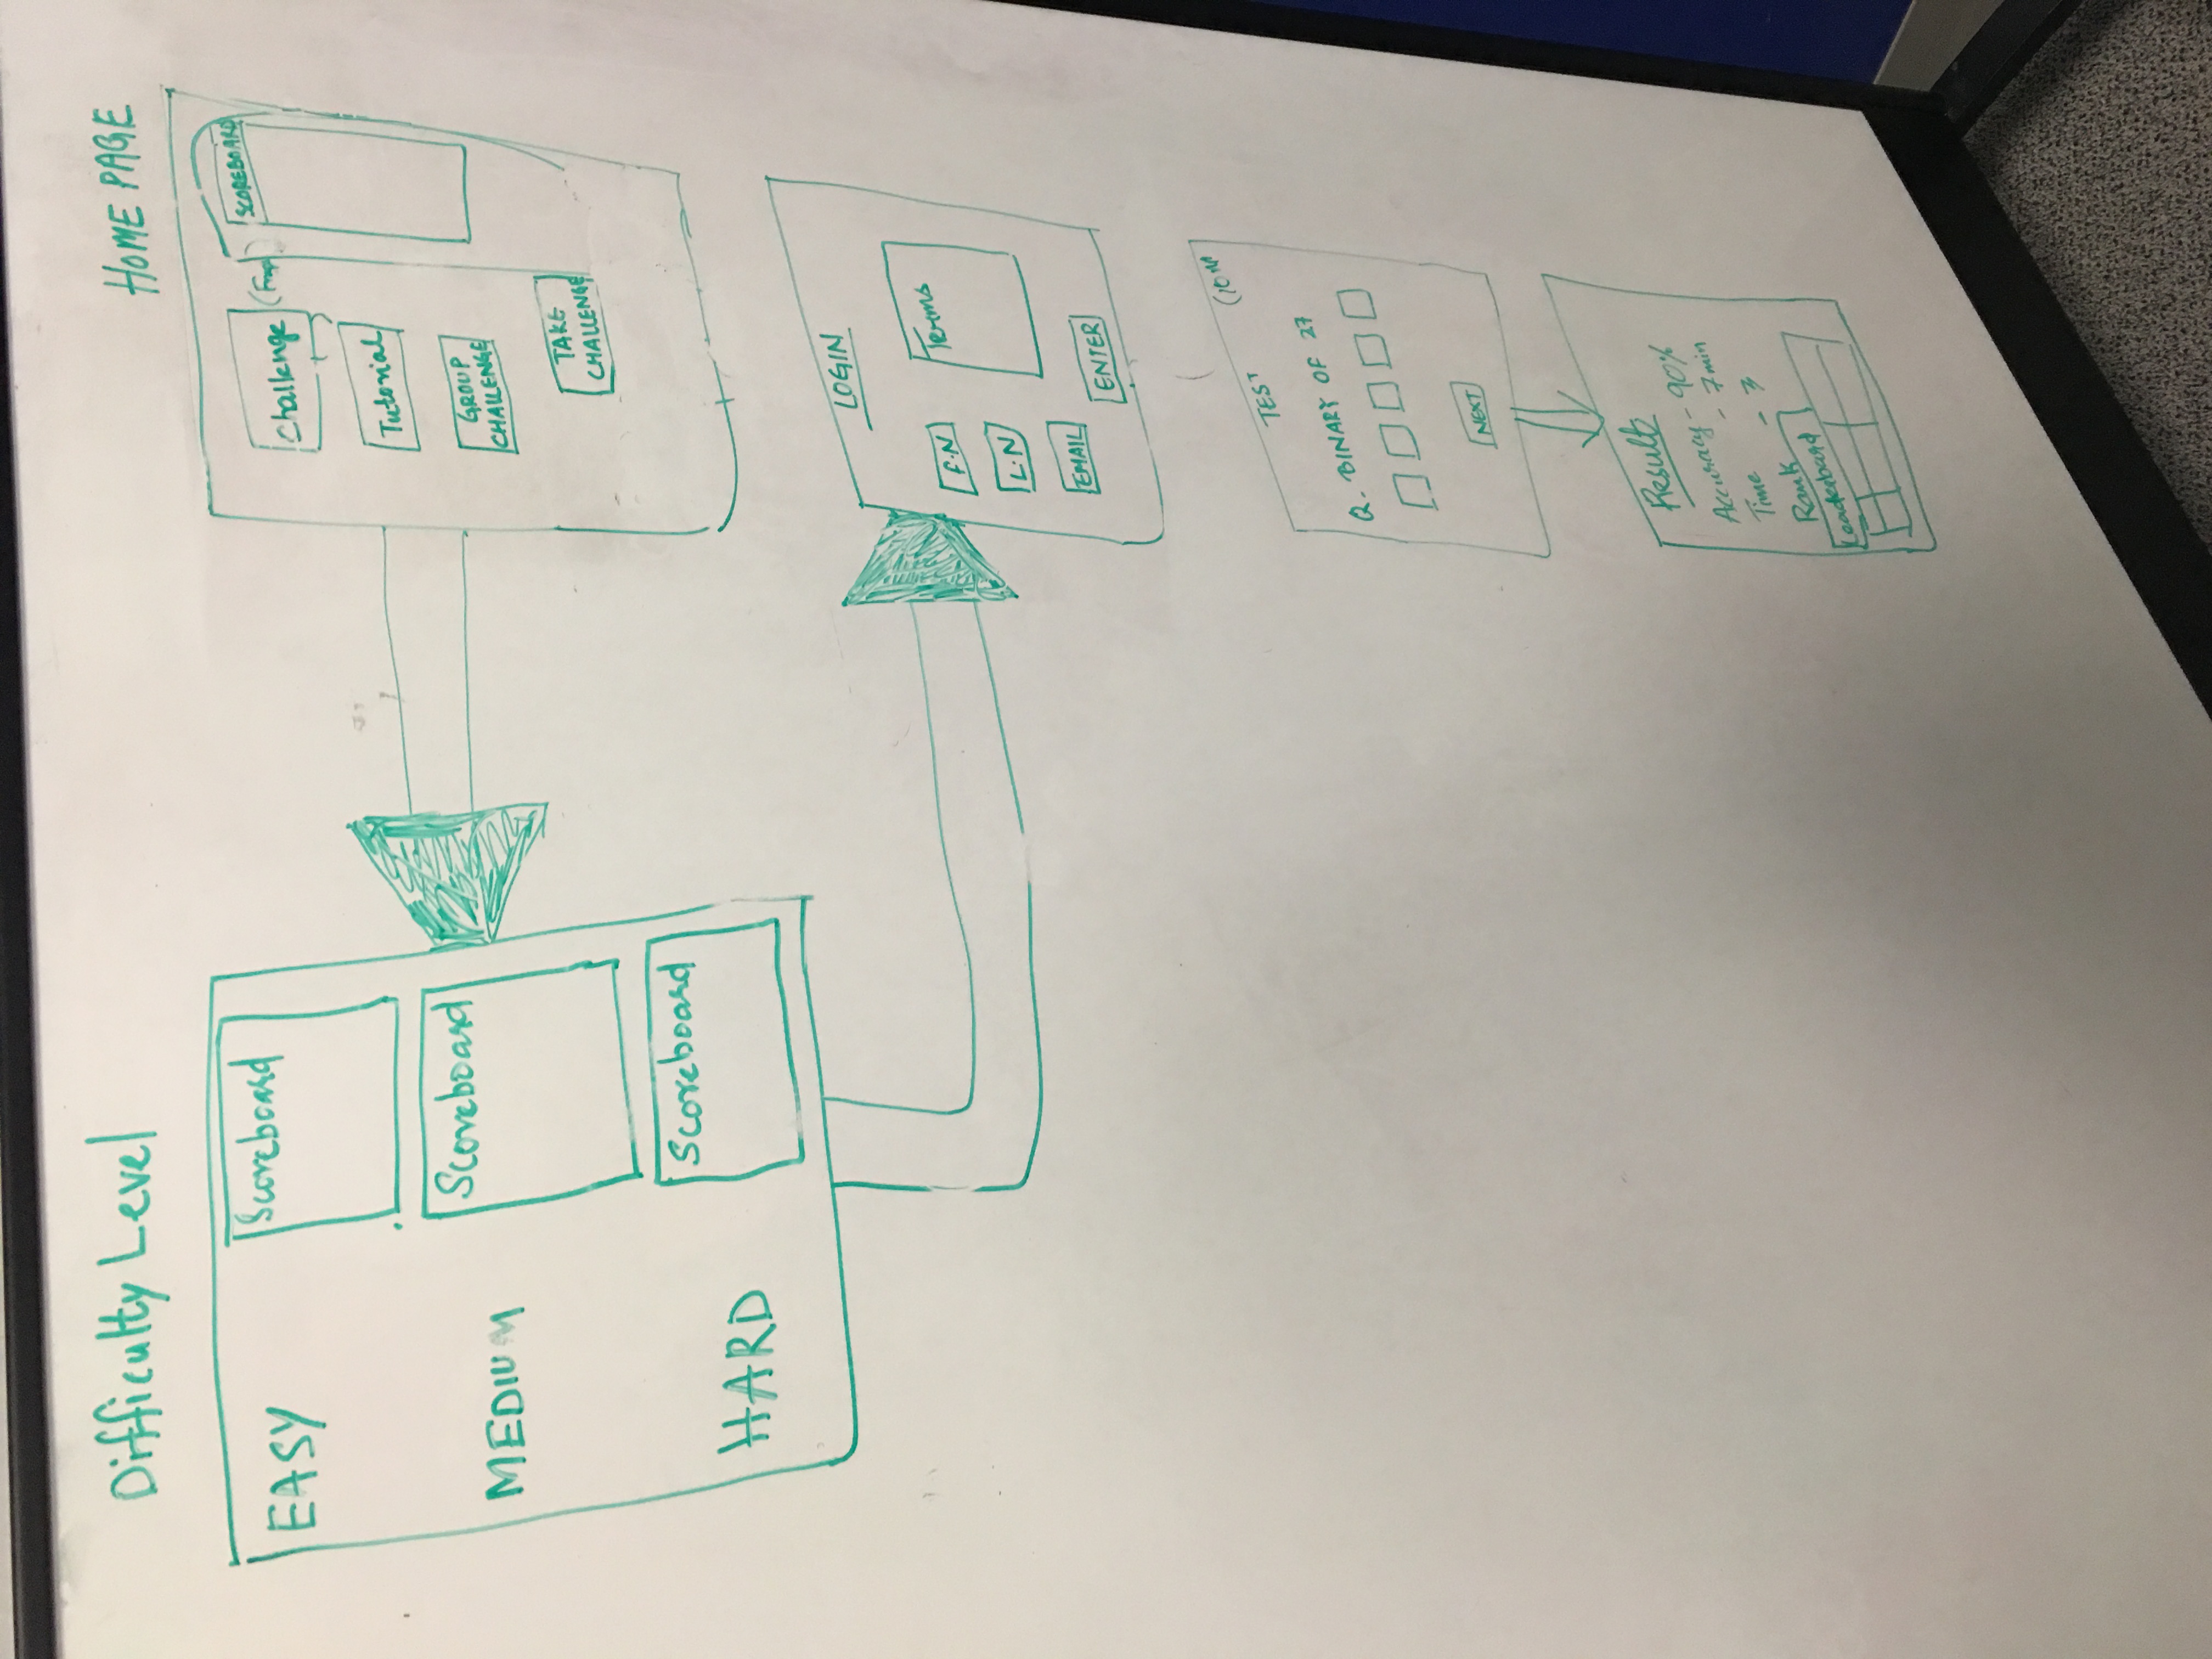 Difficulty Level
EASY
Scoreboard
MEDIUM
Scoreboard
HARD
Scoreboard
HOME PAGE
Challenge
SCOREBOARD
Tutorial
GROUP
CHALLENGE
TAKE
CHALLENGE
LOGIN
F.N
Terms
L.N
EMAIL
ENTER
TEST
(10 M
Q. BINARY OF 27
NEXT
Result
Accuracy - 90%
Time - 7 min
Rank - 3
Leaderboard